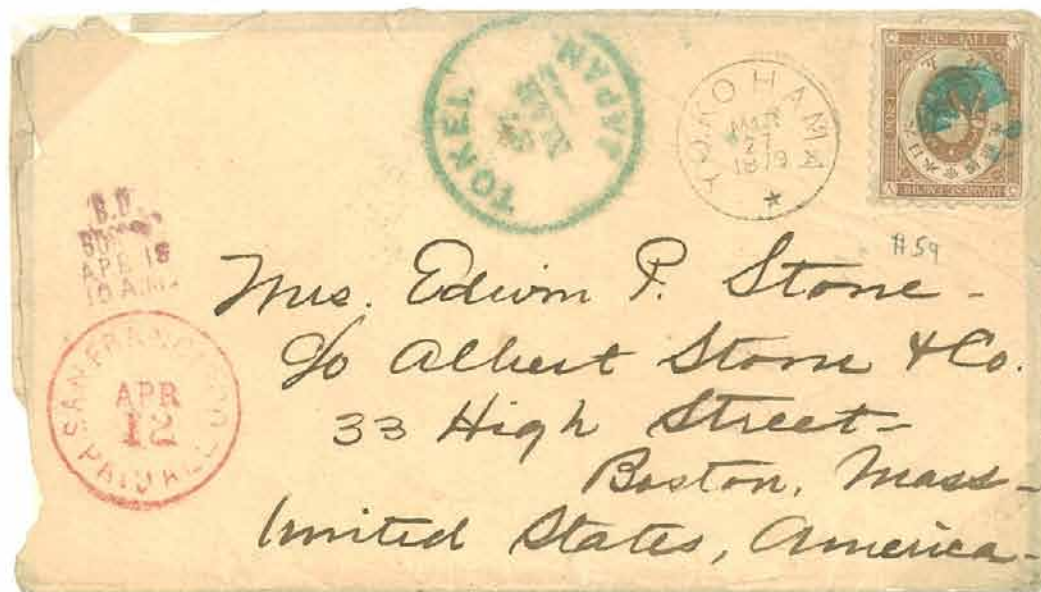 TOKEI JAPAN
MAR
YOKOHAMA
MAR
27
1879
FIVE SEN
JAPANESE EMPIRE
大日本帝國郵便
#59
B.D.
APR 18
10 A.M.
SAN FRANCISCO
APR
12
PAID ALL
Mrs. Edwin P. Stone -
c/o Albert Stone & Co.
33 High Street -
Boston, Mass -
United States, America -